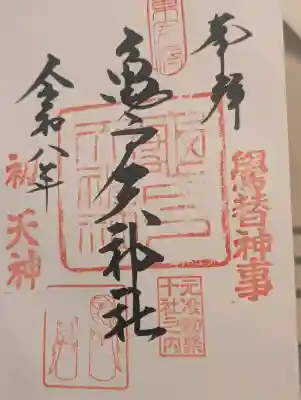 奉拝
鷽替神事
亀戸天神社
元准勅祭
十社之内
令和八年
初天神